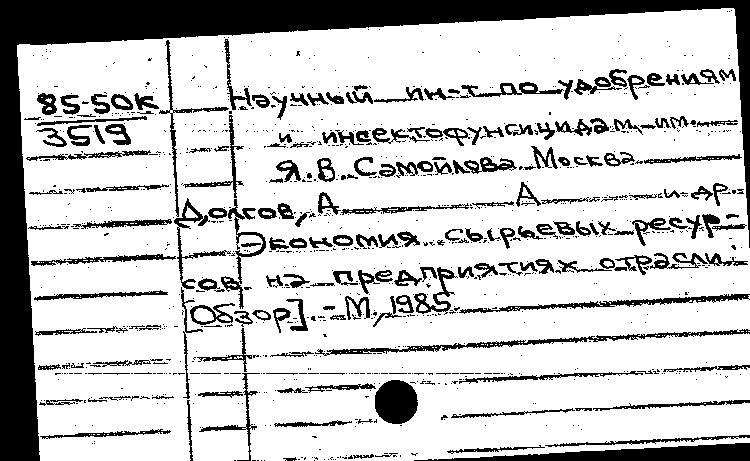 85-50к
3519
Научный ин-т по удобрениям
и инсектофунгицидам им.
Я.В. Самойлова. Москва
Долгов, А. А. и др.
Экономия сырьевых ресур-
сов на предприятиях отрасли:
[Обзор]. - М., 1985.